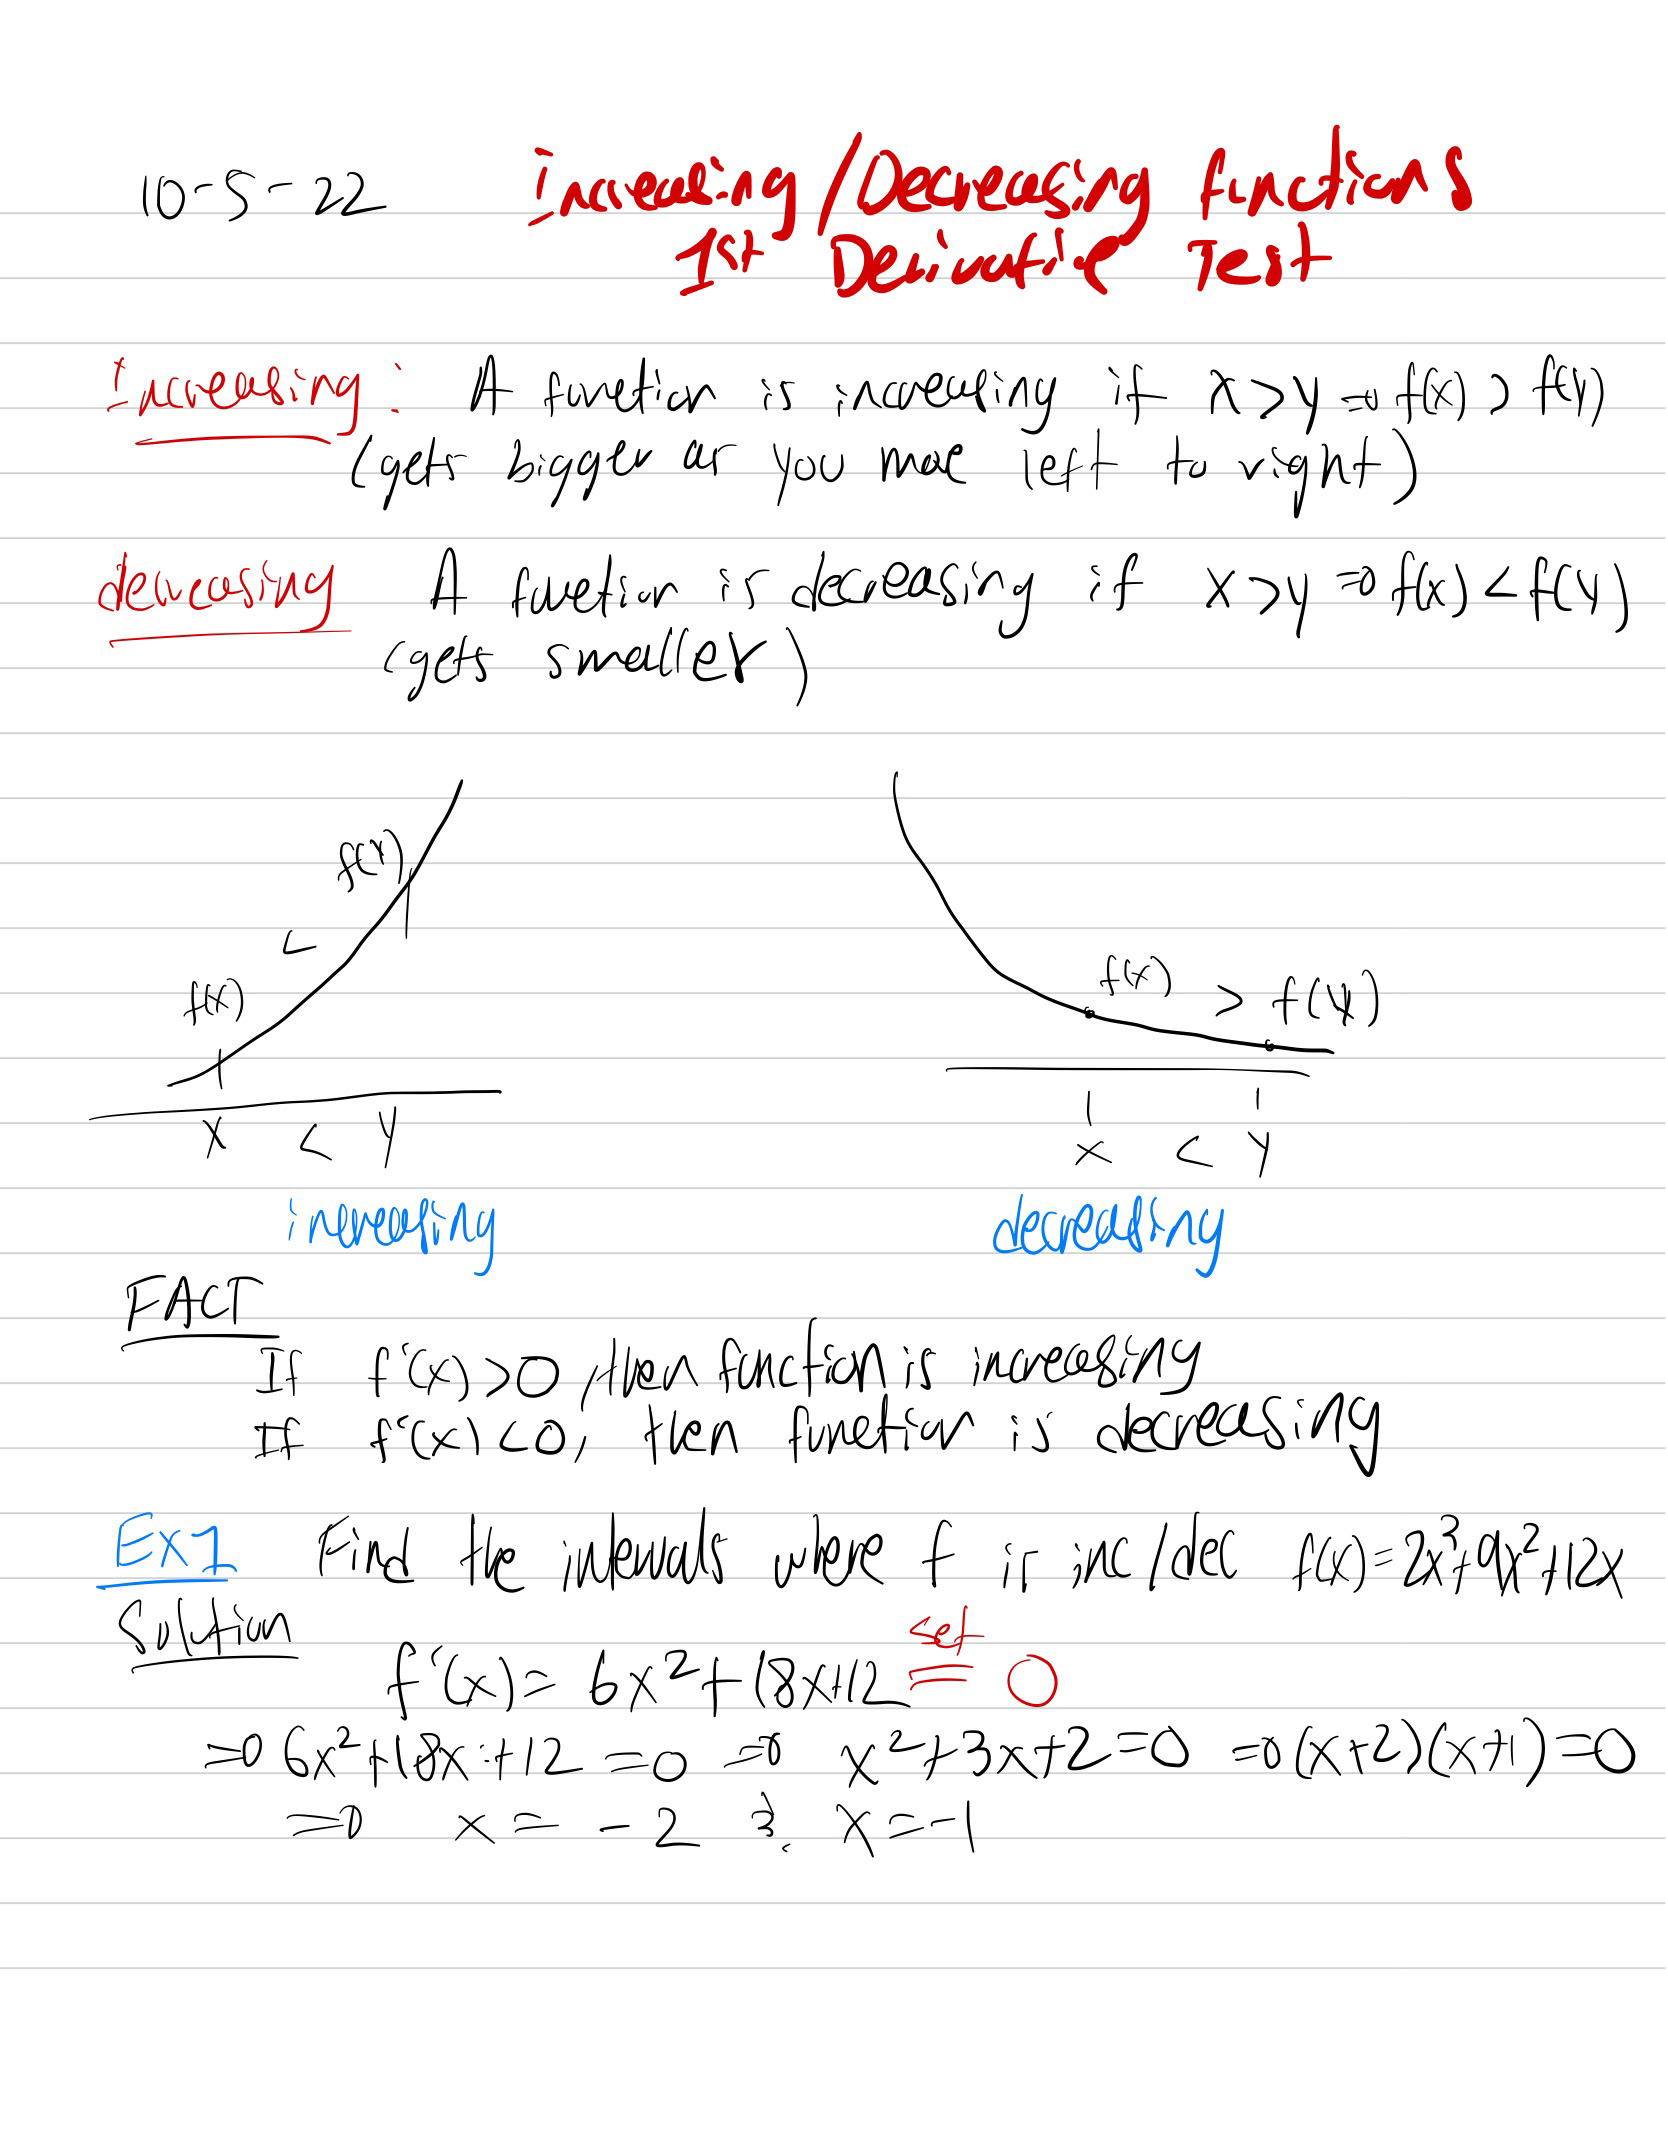 10-5-22 Increasing/Decreasing functions
1st Derivative Test
Increasing: A function is increasing if x>y ⇒ f(x) > f(y)
(gets bigger as you move left to right)
decreasing A function is decreasing if x>y ⇒ f(x) < f(y)
(gets smaller)
f(x) < f(x)
x < y
increasing
f(x) > f(y)
x < y
decreasing
FACT
If f'(x)>0, then function is increasing
If f'(x)<0, then function is decreasing
Ex1 Find the intervals where f is inc/dec f(x)=2x³+9x²+12x
Solution
set
f'(x)= 6x²+18x+12 = 0
⇒ 6x²+18x+12=0 ⇒ x²+3x+2=0 ⇒ (x+2)(x+1)=0
⇒ x=-2 & x=-1